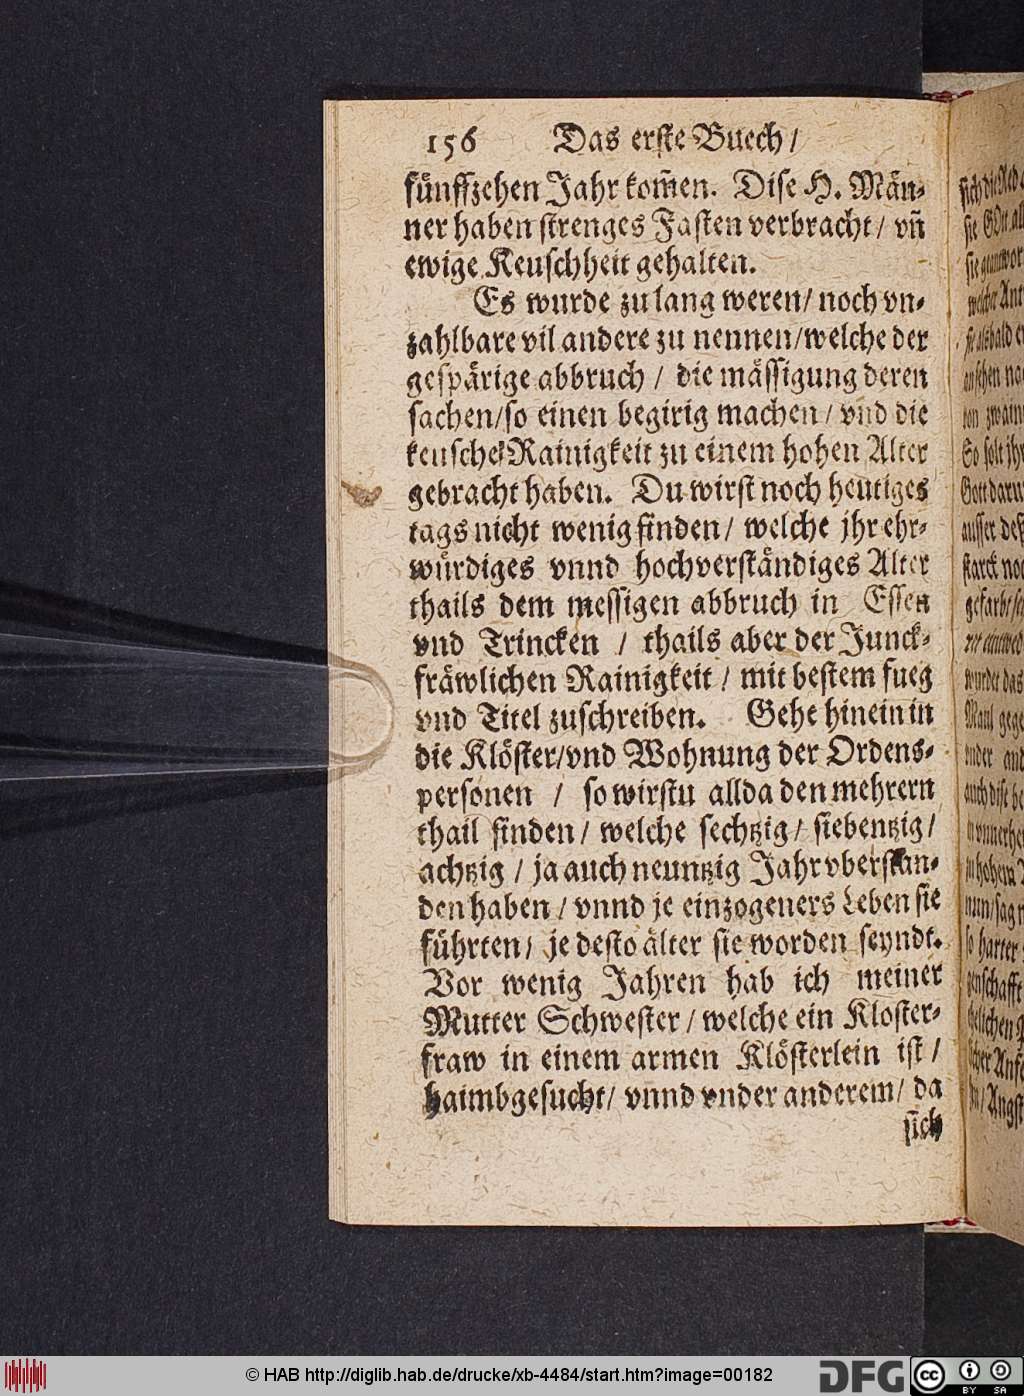 156 Das erste Buech /
fünffzehen Jahr kom̃en. Dise H. Män-
ner haben strenges Fasten verbracht / vñ
ewige Keuschheit gehalten.
Es wurde zu lang weren / noch vn-
zahlbare vil andere zu nennen / welche der
gespärige abbruch / die mässigung deren
sachen / so einen begirig machen / vnd die
keusche Rainigkeit zu einem hohen Alter
gebracht haben. Du wirst noch heutiges
tags nicht wenig finden / welche jhr ehr-
würdiges vnnd hochverständiges Alter
thails dem messigen abbruch in Essen
vnd Trincken / thails aber der Junck-
fräwlichen Rainigkeit / mit bestem fueg
vnd Titel zuschreiben. Gehe hinein in
die Klöster / vnd Wohnung der Ordens-
personen / so wirstu allda den mehrern
thail finden / welche sechtzig / siebentzig /
achtzig / ja auch neuntzig Jahr vberstan-
den haben / vnnd je einzogeners Leben sie
führten / je desto älter sie worden seyndt.
Vor wenig Jahren hab ich meiner
Mutter Schwester / welche ein Kloster-
fraw in einem armen Klösterlein ist /
haimbgesucht / vnnd vnder anderem / da
sich
© HAB http://diglib.hab.de/drucke/xb-4484/start.htm?image=00182
DFG
cc
BY SA